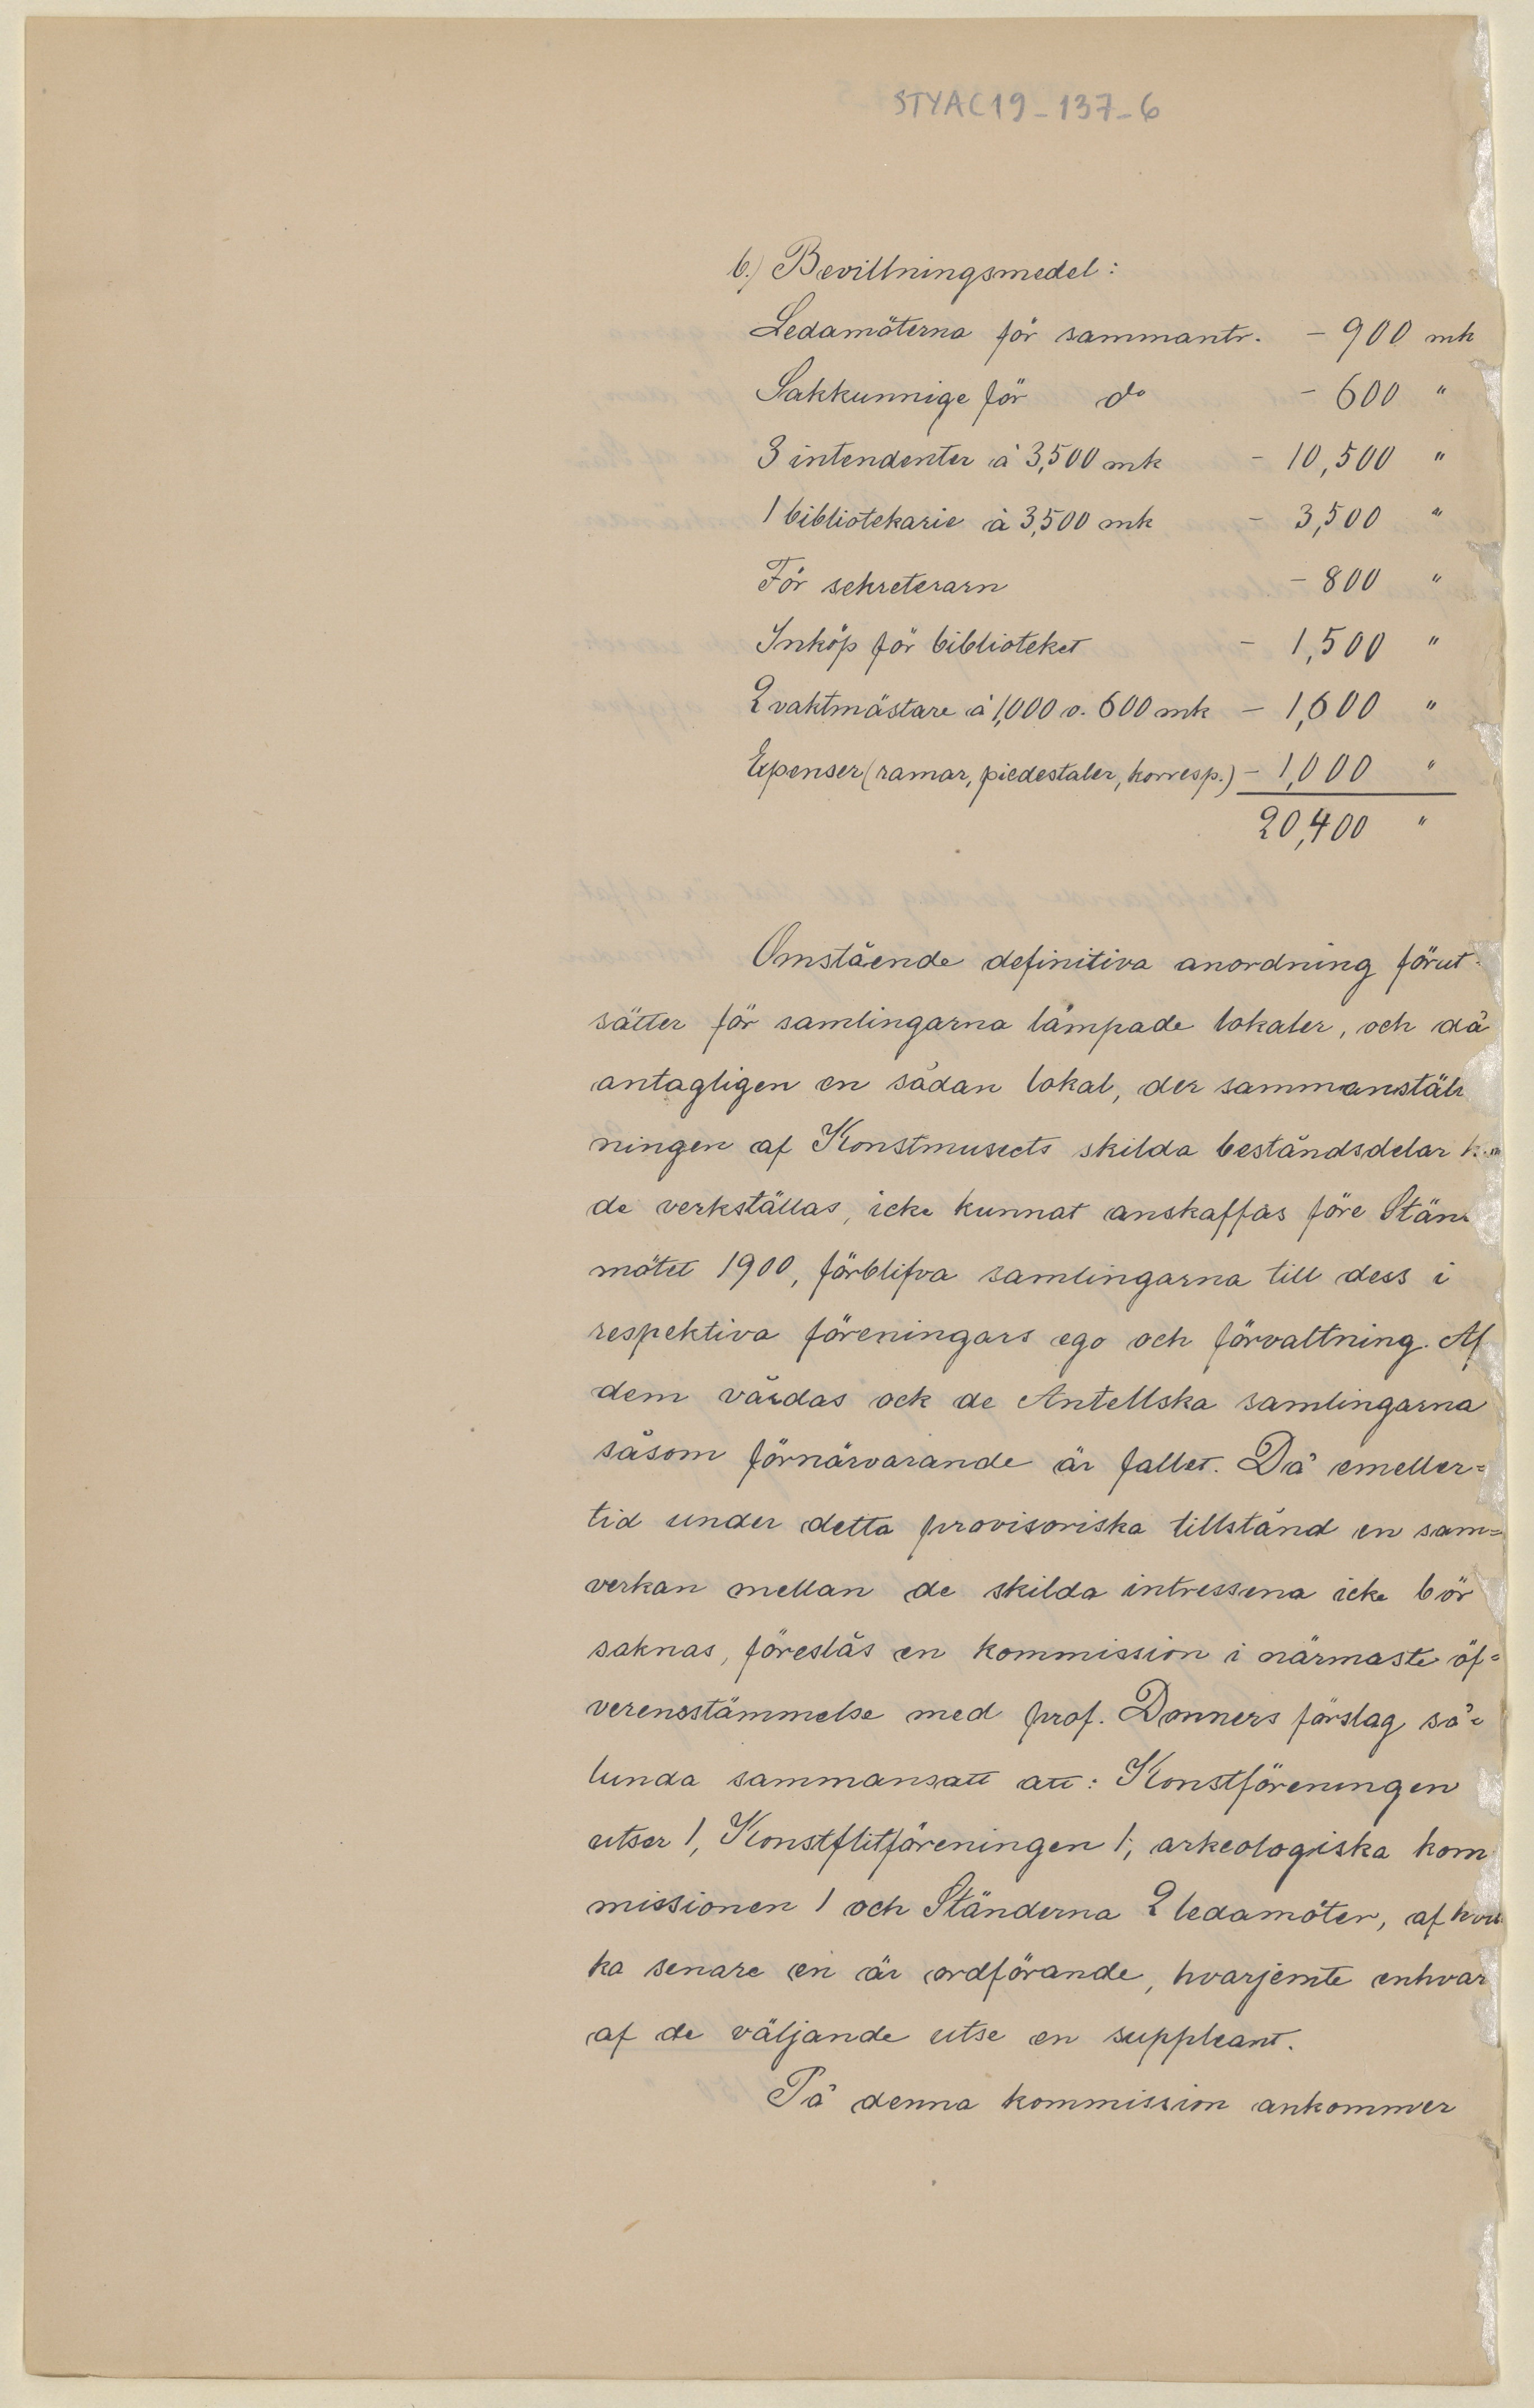 STYAC19-137-6
b.) Bevillningsmedel:
Ledamöterna för sammantr. - 900 mk
Sakkunnige för do - 600 "
3 intendenter à 3,500 mk - 10,500 "
1 bibliotekarie à 3,500 mk - 3,500 "
För sekreterarn - 800 "
Inköp för biblioteket - 1,500 "
2 vaktmästare à 1,000 o. 600 mk - 1,600 "
Expenser (ramar, piedestaler, korresp.) - 1,000 "
20,400 "
Omstående definitiva anordning förut-
sätter för samlingarna lämpade lokaler, och då
antagligen en sådan lokal, der sammanstäl
ningen af Konstmuseets skilda beståndsdelar
de verkställas, icke kunnat anskaffas före Stän
mötet 1900, förblifva samlingarna till dess i
respektiva föreningars ego och förvaltning. Af
dem vårdas ock de Antellska samlingarna
såsom förnärvarande är fallet. Då emeller=
tid under detta provisoriska tillstånd en sam=
verkan mellan de skilda intressena icke bör
saknas, föreslås en kommission i närmaste öf=
verensstämmelse med prof. Donners förslag så=
lunda sammansatt att: Konstföreningen
utser 1, Konstflitföreningen 1, arkeologiska kom
missionen 1 och Ständerna 2 ledamöter, af
ka senare en är ordförande, hvarjemte enhvar
af de väljande utse en suppleant.
På denna kommission ankommer